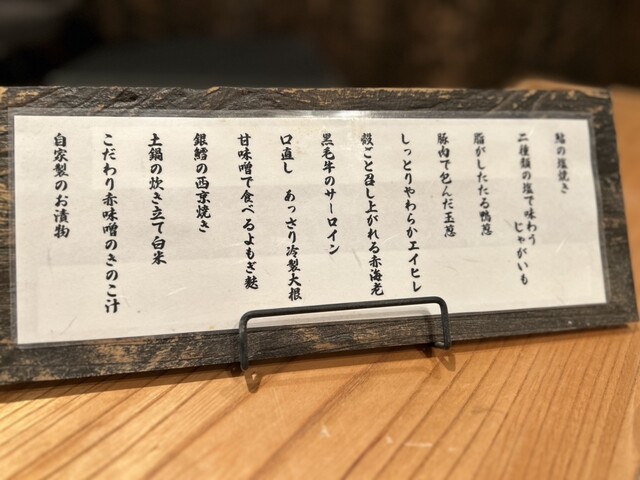 鮎の塩焼き
二種類の塩で味わう
じゃがいも
脂がしたたる鴨葱
豚肉で包んだ玉葱
しっとりやわらかエイヒレ
殻ごと召し上がれる赤海老
黒毛牛のサーロイン
口直し あっさり冷製大根
甘味噌で食べるよもぎ麩
銀鱈の西京焼き
土鍋の炊き立て白米
こだわり赤味噌のきのこ汁
自家製のお漬物